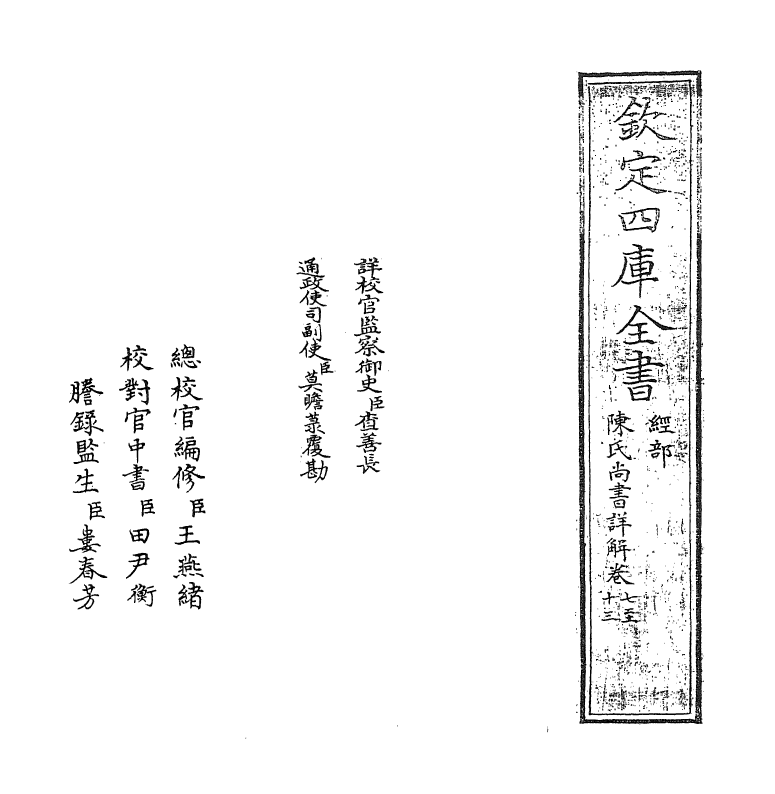 欽定四庫全書
經部
陳氏尚書詳解卷七至十三
詳校官監察御史臣查善長
通政使司副使臣莫瞻菉覆勘
總校官編修臣王燕緒
校對官中書臣田尹衡
謄錄監生臣婁春芳